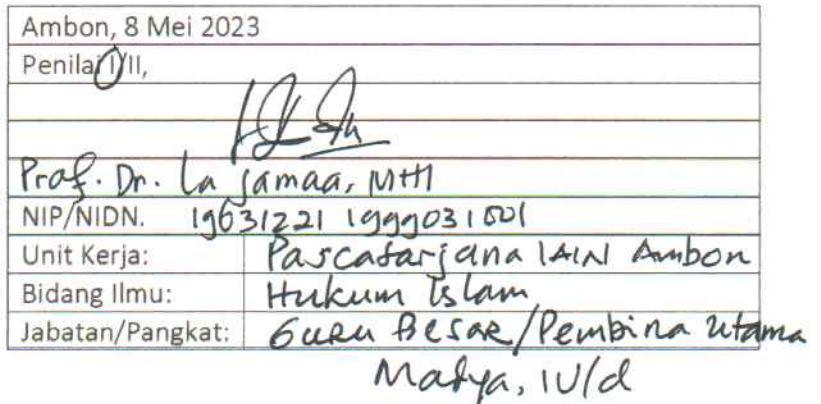 Ambon, 8 Mei 2023
Penilai I/II,
Prof. Dr. La Jamaa, MHI
NIP/NIDN. 19631221 1999031001
Unit Kerja: Pascasarjana IAIN Ambon
Bidang Ilmu: Hukum Islam
Jabatan/Pangkat: Guru Besar/Pembina Utama
Madya, IV/d